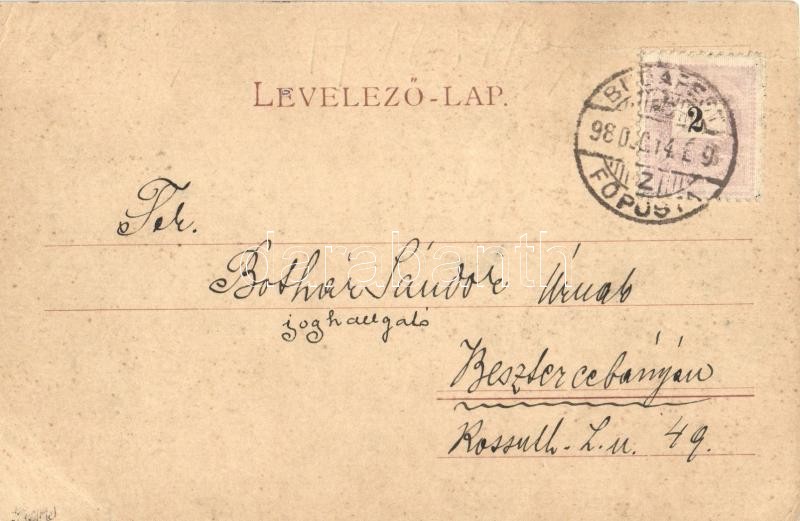 LEVELEZŐ-LAP.
2
BUDAPEST
98 DEC 14 E 9
Z
FŐPOSTA
Tek.
Bothár Sándor Úrnak
joghallgató
Besztercebányán
Kossuth-L.u. 49.
darabanth